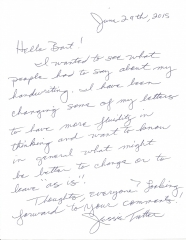 June 29th, 2015
Hello Bart!
I wanted to see what
people had to say about my
handwriting. I have been
changing some of my letters
to have more fluidity in
thinking and want to know
in general what might
be better to change or to
leave "as is".
Thoughts, everyone? Looking
forward to your comments.
Jessie